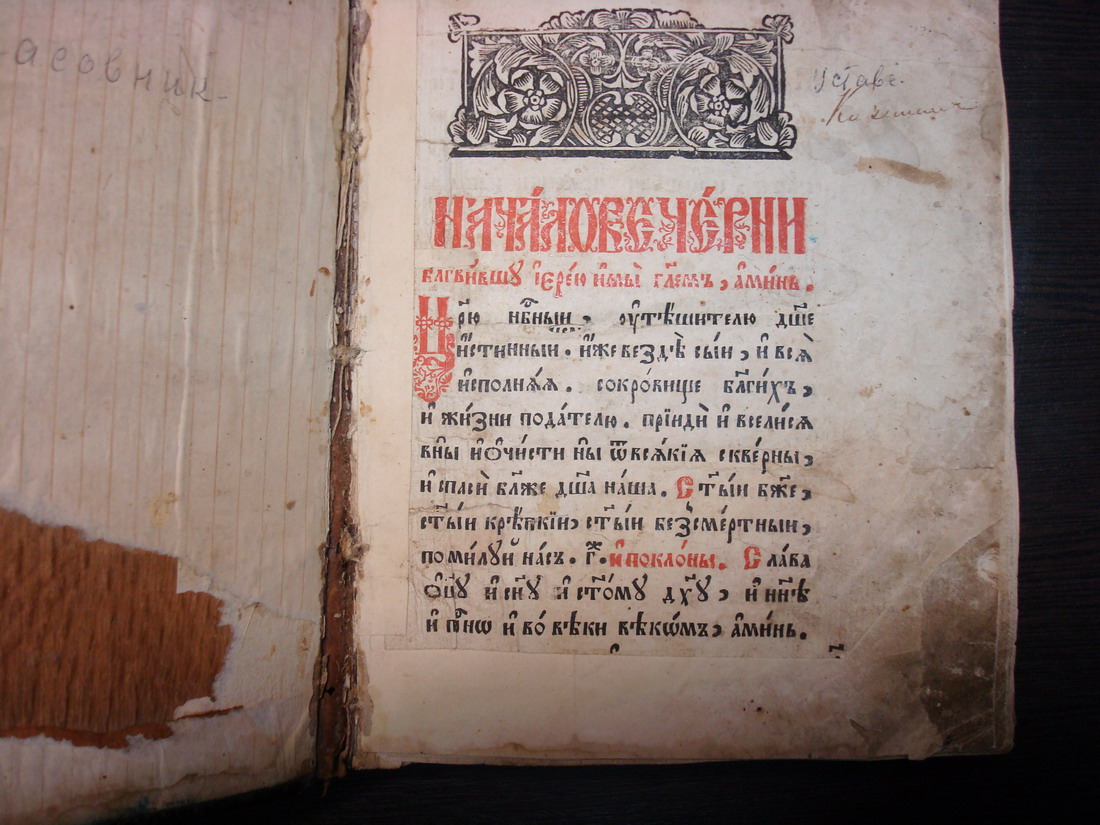 асовник
уставе.
НАЧА́ЛОВЕЧЕ́РНИ
бл҃гви́вшу і҆ере́ю и҆мы̀ гл҃емъ, а҆ми́нь.
Цр҃ю нб҃ныи, оу҆тѣ́шителю дш҃е
и҆́стинныи. и҆́же вездѣ̀ сы́и, и҆ вся̀
и҆сполня́я. сокро́вище бл҃ги́хъ,
и҆ жи́зни пода́телю. прїидѝ и҆ всели́ся
вны̀ и҆ѻ҆чи́сти ны̀ ѿвся́кїя скве́рны,
и҆ спасѝ бл҃же дш҃а на́ша. Ст҃ы́и бж҃е,
ст҃ы́и крѣ́пкїи, ст҃ы́и безсме́ртныи,
поми́луй на́съ. г҃ж. и҆ покло́ны. Сла́ва
ѻ҆ц҃у и҆ сн҃у и҆ ст҃о́му дх҃у, и҆ нн҃ѣ
и҆ пр҃нѡ и҆ во́ вѣки вѣкѡ́мъ, а҆ми́нь.